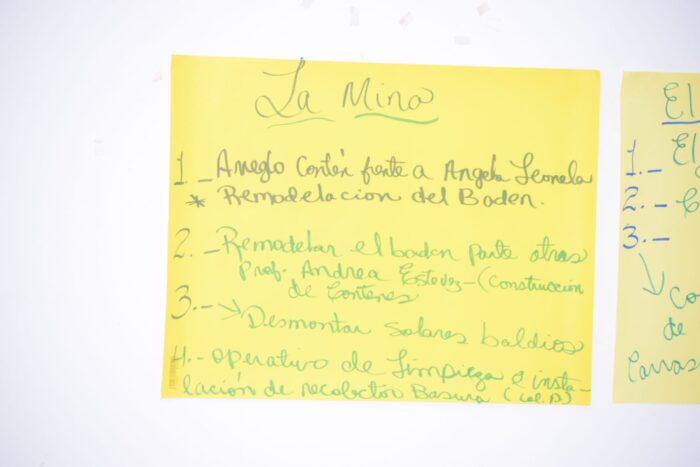 La Mina
1._ Arreglo Contén frente a Angela Leonela
* Remodelacion del Baden.
2. _ Remodelar el baden parte atras
Prof. Andrea Estevez-(Construccion
de Contenes
3.- → Desmontar Solares baldios
4.- operativo de Limpieza e insta-
lación de recolector Basura (col. P)
El
El
1.-
2.-
3.-
Co
de
Carras